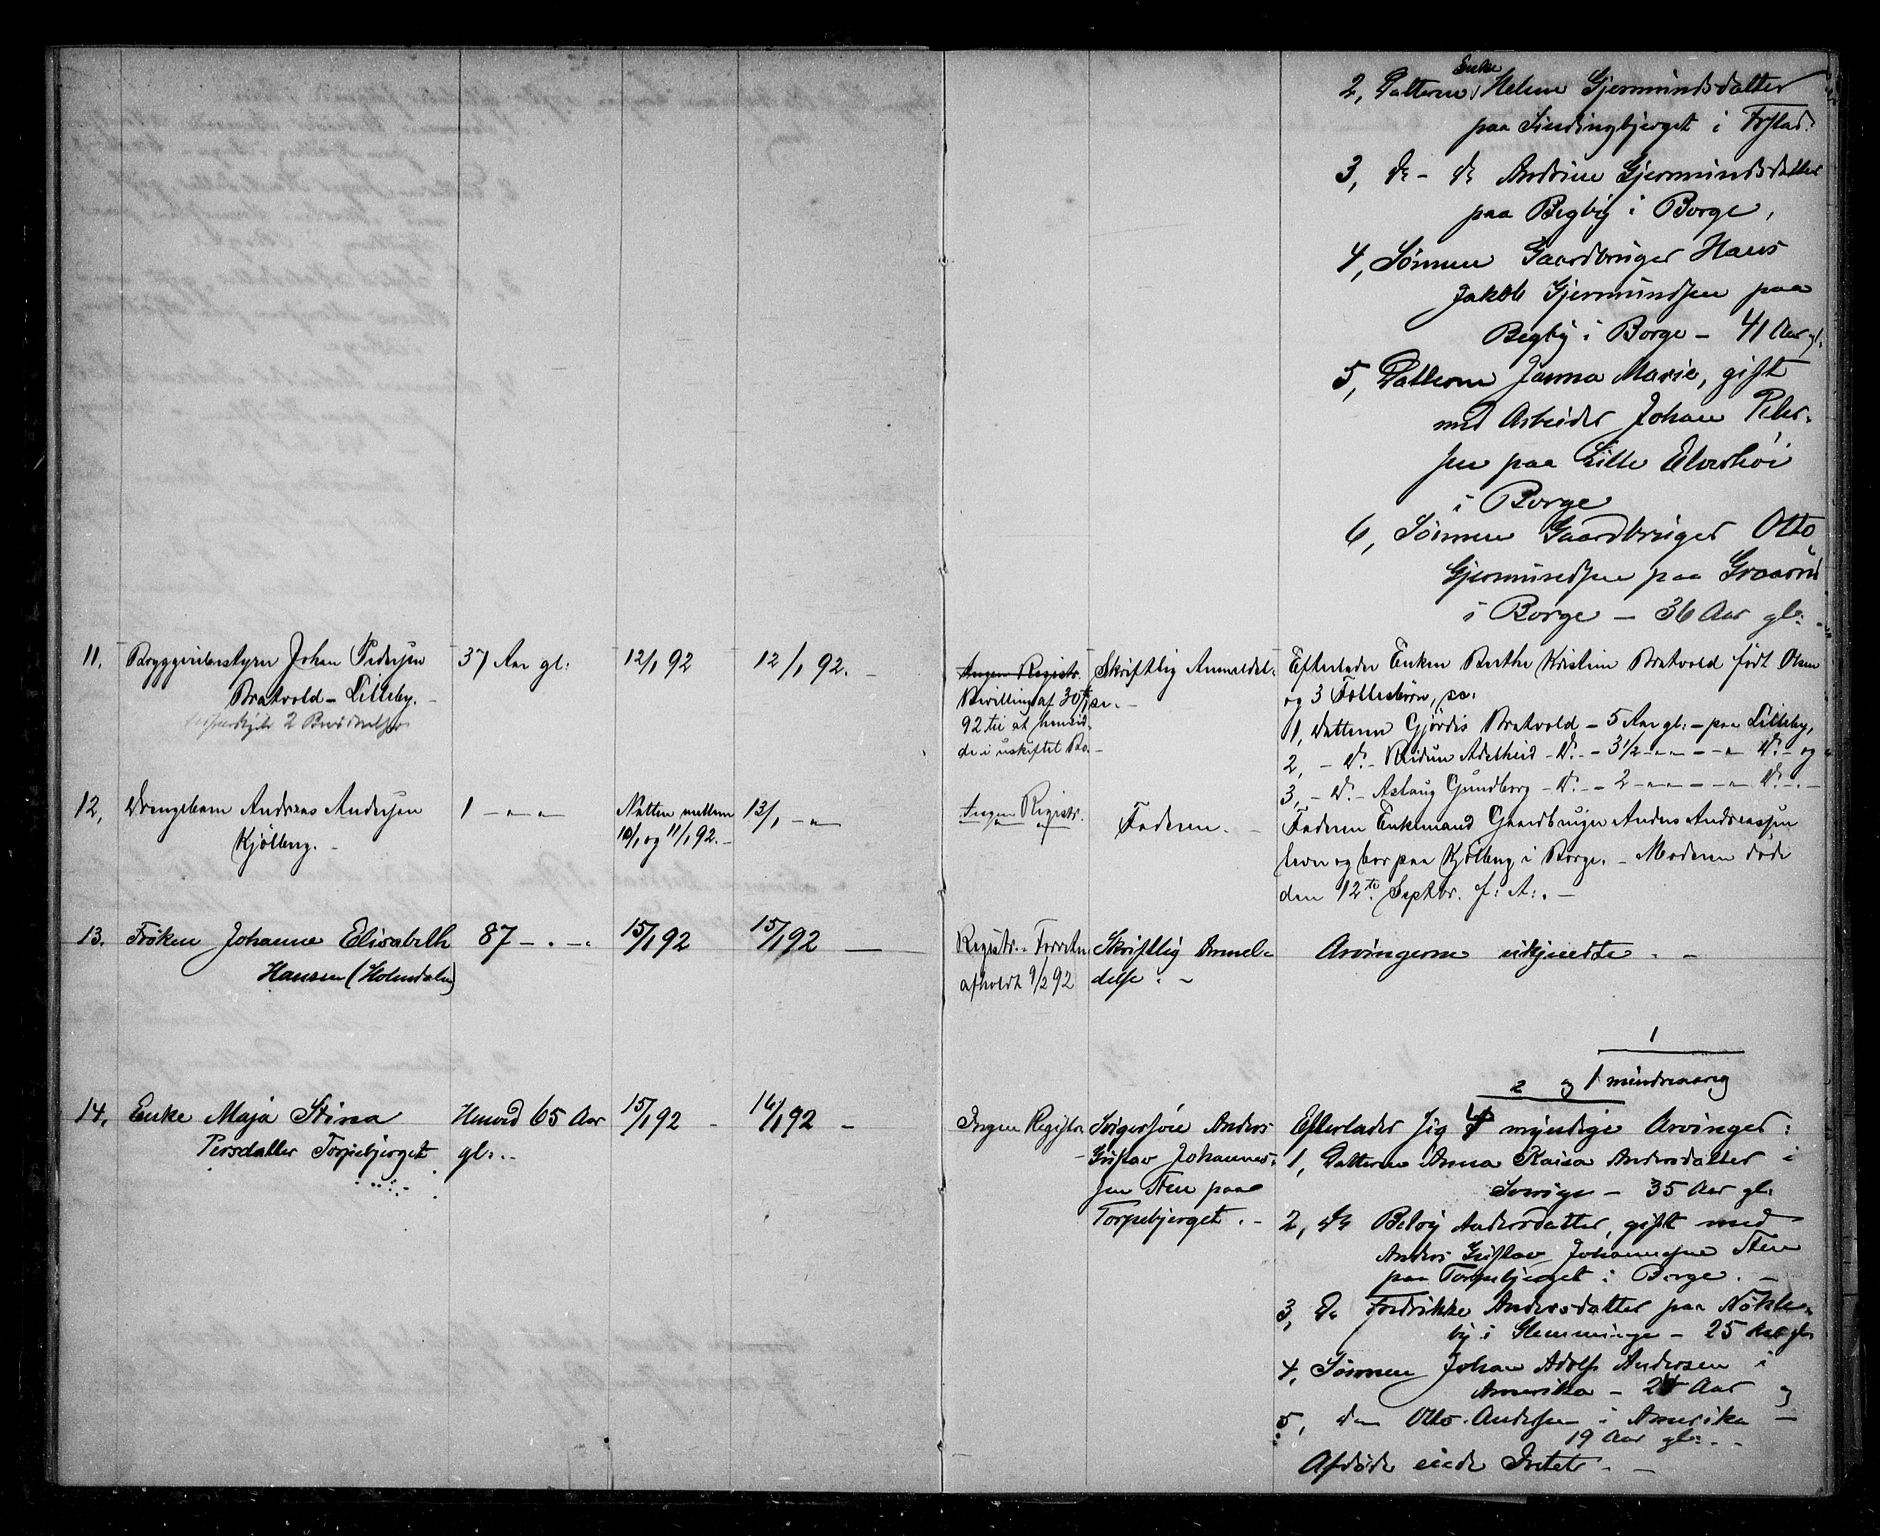 Enke
2, Datteren Helene Gjermundsdatter
paa Sindingbjerget i Frstad.
3, do - do Andrine Gjermundsdatter
paa Begby i Borge,
4, Sønnen Gaardbruger Hans
Jakob Gjermundsen paa
Begby i Borge - 41 Aar gl.
5, Datteren Janna Marie, gift
med Arbeider Johan Peter-
sen paa Lille Elverhøi
i Borge
6, Sønnen Gaardbruger Otto
Gjermundsen paa Graarud
i Borge - 36 Aar gl:
11. Bryggeribestyrer Johan Pedersen
Bratvold - Lilleby. -
37 Aar gl:
12/1 92
12/1 92. -
Ingen Registr.
Bevilling af 30te/1
92 til at hensid-
de i uskiftet Bo. -
Skriftlig Anmeldel-
se. -
Efterlader Enken Berthe Kristine Bratvold født Olsen
og 3 Fællesbørn, so:
1, Datteren Gjørdis Bratvold - 5 Aar gl: - paa Lilleby,
2, - Do - Reidun Adelheid - Do. - 3 1/2 - " - " - Do. - og
3, - Do - Aslaug Gundborg - Do - 2 - " - " - Do. -
12, Drengebarn Andreas Andersen
Kjølberg. -
1 - " - "
Natten mellem
10/1 og 11/1 92. -
13/1 - " -
Ingen Registr.
Faderen. -
Faderen Enkemand Gaardbruger Anders Andreassen
lever og bor paa Kjølberg i Borge. - Moderen døde
den 12te Septbr. f: A:. -
13. Frøken Johanne Elisabeth
Hansen (Holmdalen)
87 - " - "
15/1 92
15/1 92 -
Registr. Forretn.
afholdt 9/2 92
Skriftlig Anmel-
delse. -
Arvingerne ukjendte. -
1
2 og 1 mindreaarig
14. Enke Maja Stina
Persdatter Torpebjerget
Henved 65 Aar
gl:. -
15/1 92 -
16/1 92 -
Ingen Registr.
Svigersøn Anders
Gustav Johannes-
sen Sten paa
Torpebjerget. -
Efterlader sig 4 myndige Arvinger:
1, Datteren Anna Kaisa Andersdatter i
Sverige - 35 Aar gl:
2, do Betsy Andersdatter, gift med
Anders Gustav Johannesen Sten
paa Torpebjerget i Borge. -
3, Do Fredrikke Andersdatter paa Nøkle-
by i Glemminge - 25 Aar gl:
4, Sønnen Johan Adolf Andersen i
Amerika - 24 Aar og
5, do Otto Andersen i Amerika -
19 Aar gl:. -
Afdøde eiede Intet. -